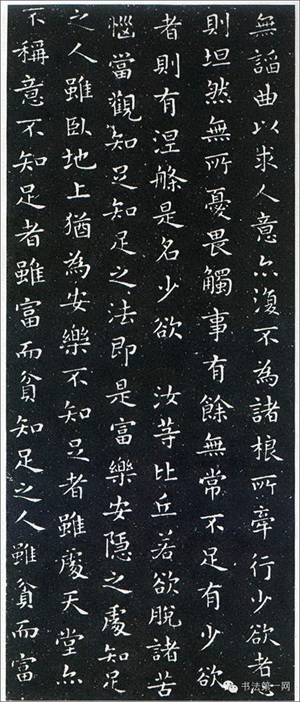 無諂曲以求人意亦復不為諸根所牽行少欲者心
則坦然無所憂畏觸事有餘無常不足有少欲
者則有涅槃是名少欲 汝等比丘若欲脫諸苦
惱當觀知足知足之法即是富樂安隱之處知足
之人雖臥地上猶為安樂不知足者雖處天堂亦
不稱意不知足者雖富而貧知足之人雖貧而富
书法第一网